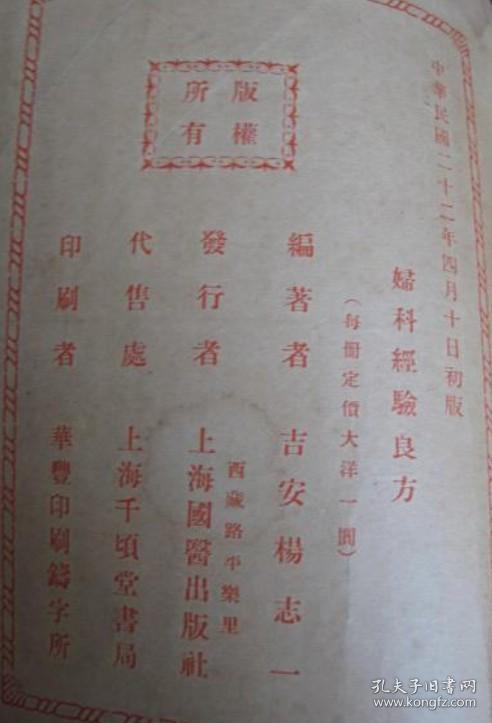 中華民國二十二年四月十日初版
婦科經驗良方
（每冊定價大洋一圓）
編著者 吉安楊志一
西藏路平樂里
發行者 上海國醫出版社
代售處 上海千頃堂書局
印刷者 華豐印刷鑄字所
版權
所有
孔夫子旧书网
www.kongfz.com